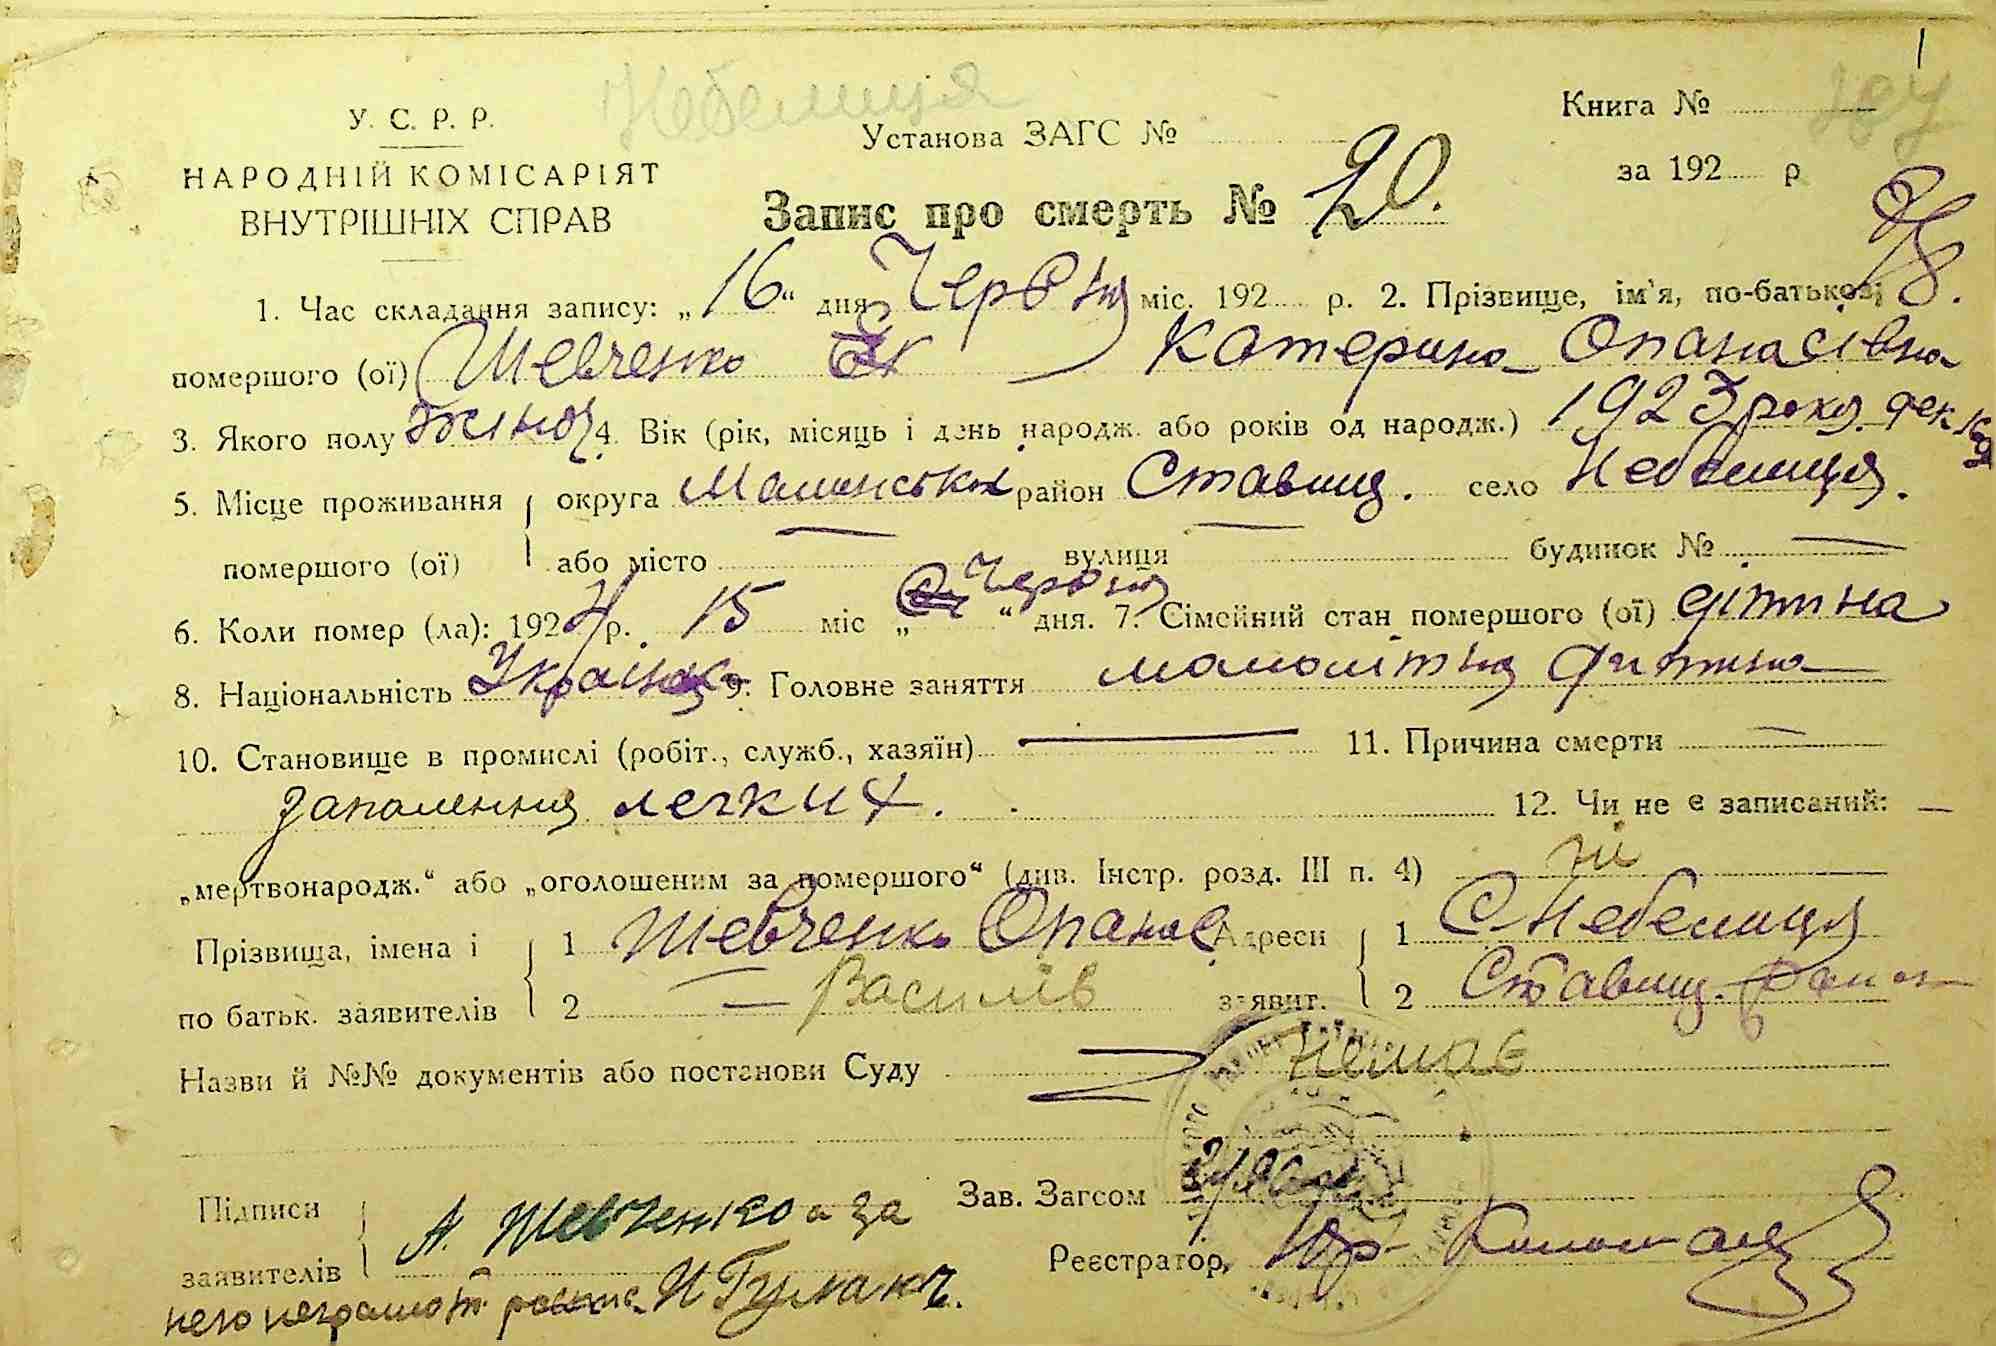 Небелиця
У. С. Р. Р.
НАРОДНІЙ КОМІСАРІЯТ
ВНУТРІШНІХ СПРАВ
Установа ЗАГС №
Книга №
за 192 р
Запис про смерть № 20.
1. Час складання запису: „16“ дня Червня міс. 192 р. 2. Прізвище, ім'я, по-батькові
помершого (ої) Шевченко Катерина Опанасівна
3. Якого полу жіноч 4. Вік (рік, місяць і день народж. або років од народж.) 1923 року дек
5. Місце проживання округа Малинська район Ставищ. село Небелиця.
помершого (ої) або місто — вулиця — будинок № —
6. Коли помер (ла): 1924 р. 15 міс „Червня“ дня. 7. Сімейний стан помершого (ої) дітина
8. Національність Українка 9. Головне заняття малолітня дитина
10. Становище в промислі (робіт., служб., хазяїн) — 11. Причина смерти —
запалення легких. 12. Чи не є записаний: —
„мертвонародж.“ або „оголошеним за помершого“ (див. Інстр. розд. III п. 4) ні
Прізвища, імена і 1 Шевченко Опанас Адреси 1 С Небелиця
по батьк. заявителів 2 — Василів заявит. 2 Ставищ. район
Назви й №№ документів або постанови Суду немає
Підписи А. Шевченко а за Зав. Загсом
заявителів Реєстратор
него неграмот. И Гумакч.